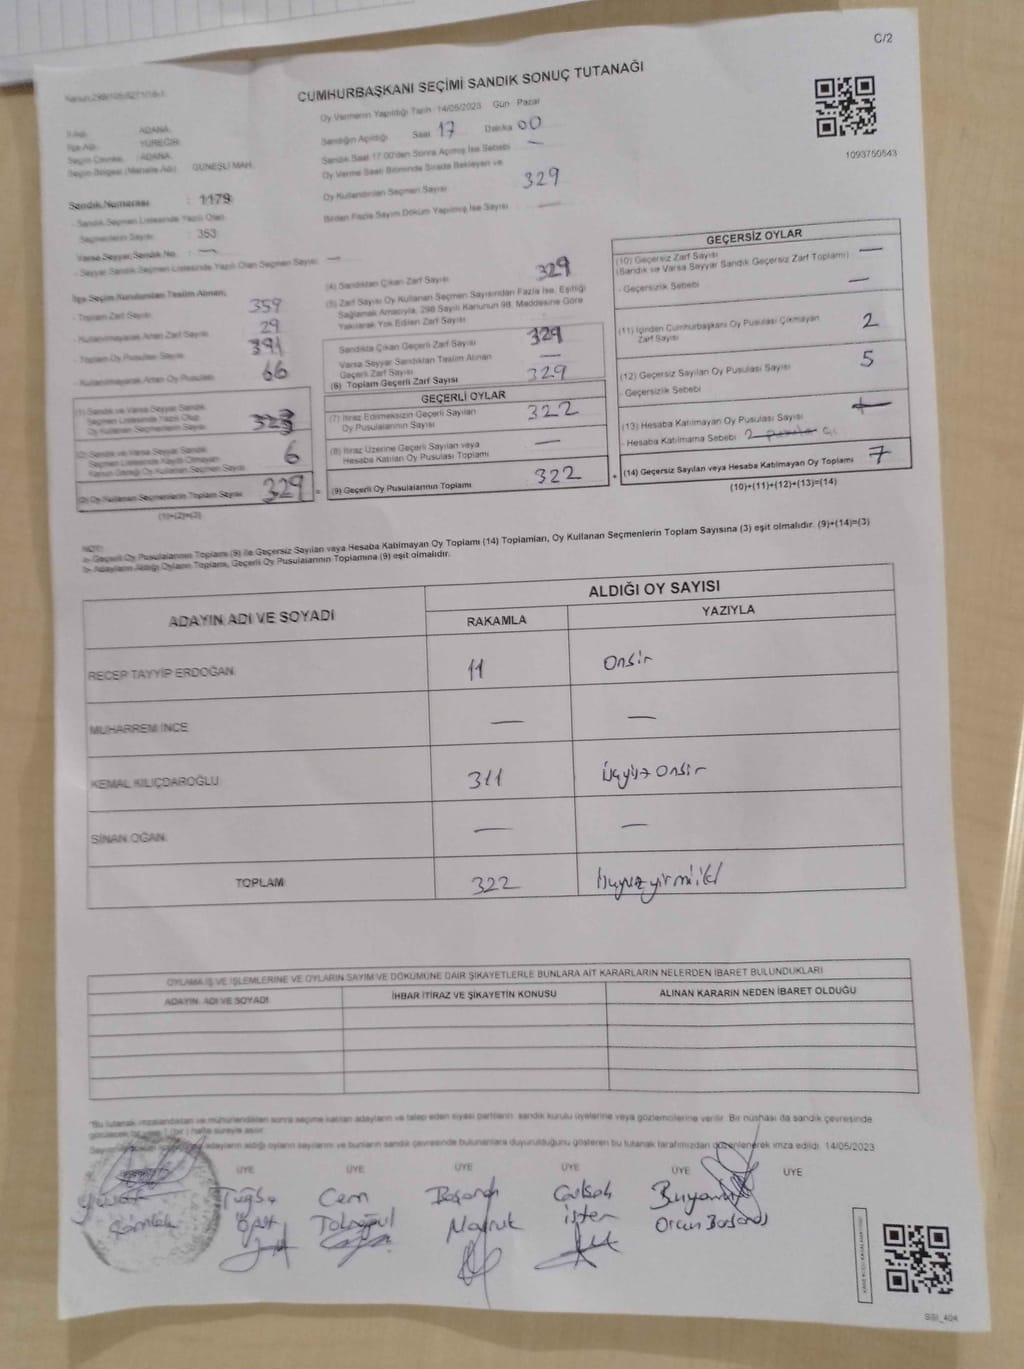 C/2
CUMHURBAŞKANI SEÇİMİ SANDIK SONUÇ TUTANAĞI
1093750543
Oy Vermenin Yapıldığı Tarih :14/05/2023 Gün Pazar
Sandığın Açıldığı Saat 17 Dakika 00
Sandık Saat 17:00'den Sonra Açılmış İse Sebebi —
Oy Verme Saati Bitiminde Sırada Bekleyen ve
Oy Kullandırılan Seçmen Sayısı 329
Birden Fazla Sayım Döküm Yapılmış İse Sayısı —
İl Adı : ADANA
İlçe Adı : YÜREĞİR
Seçim Çevresi : ADANA
Seçim Bölgesi (Mahalle Adı) : GÜNEŞLİ MAH.
Sandık Numarası : 1179
- Sandık Seçmen Listesinde Yazılı Olan
Seçmenlerin Sayısı : 353
Varsa Seyyar Sandık No —
- Seyyar Sandık Seçmen Listesinde Yazılı Olan Seçmen Sayısı —
İlçe Seçim Kurulundan Teslim Alınan;
- Toplam Zarf Sayısı 359
- Kullanılmayarak Artan Zarf Sayısı 29
- Toplam Oy Pusulası Sayısı 391
- Kullanılmayarak Artan Oy Pusulası 66
(1) Sandık ve Varsa Seyyar Sandık
Seçmen Listesinde Yazılı Olup
Oy Kullanan Seçmenlerin Sayısı 323
(2) Sandık ve Varsa Seyyar Sandık
Seçmen Listesinde Kayıtlı Olmayan
Kanun Gereği Oy Kullanan Seçmen Sayısı 6
(3) Oy Kullanan Seçmenlerin Toplam Sayısı 329
(1)+(2)=(3)
(4) Sandıktan Çıkan Zarf Sayısı 329
(5) Zarf Sayısı Oy Kullanan Seçmen Sayısından Fazla İse, Eşitliği
Sağlamak Amacıyla, 298 Sayılı Kanunun 98. Maddesine Göre
Yakılarak Yok Edilen Zarf Sayısı
Sandıkta Çıkan Geçerli Zarf Sayısı 329
Varsa Seyyar Sandıktan Teslim Alınan
Geçerli Zarf Sayısı —
(6) Toplam Geçerli Zarf Sayısı 329
GEÇERLİ OYLAR
(7) İtiraz Edilmeksizin Geçerli Sayılan
Oy Pusulasının Sayısı 322
(8) İtiraz Üzerine Geçerli Sayılan veya
Hesaba Katılan Oy Pusulası Toplamı —
(9) Geçerli Oy Pusulalarının Toplamı 322
GEÇERSİZ OYLAR
(10) Geçersiz Zarf Sayısı —
(Sandık ve Varsa Seyyar Sandık Geçersiz Zarf Toplamı)
- Geçersizlik Sebebi —
(11) İçinden Cumhurbaşkanı Oy Pusulası Çıkmayan
Zarf Sayısı 2
(12) Geçersiz Sayılan Oy Pusulası Sayısı 5
- Geçersizlik Sebebi
(13) Hesaba Katılmayan Oy Pusulası Sayısı
- Hesaba Katılmama Sebebi
(14) Geçersiz Sayılan veya Hesaba Katılmayan Oy Toplamı 7
(10)+(11)+(12)+(13)=(14)
NOT:
a- Geçerli Oy Pusulalarının Toplamı (9) ile Geçersiz Sayılan veya Hesaba Katılmayan Oy Toplamı (14) Toplamları, Oy Kullanan Seçmenlerin Toplam Sayısına (3) eşit olmalıdır. (9)+(14)=(3)
b- Adayların Aldığı Oyların Toplamı, Geçerli Oy Pusulalarının Toplamına (9) eşit olmalıdır.
ADAYIN ADI VE SOYADI
ALDIĞI OY SAYISI
RAKAMLA YAZIYLA
RECEP TAYYİP ERDOĞAN 11 Onbir
MUHARREM İNCE — —
KEMAL KILIÇDAROĞLU 311 üçyüzonbir
SİNAN OĞAN — —
TOPLAM 322 üçyüzyirmiiki
OYLAMA İŞ VE İŞLEMLERİNE VE OYLARIN SAYIM VE DÖKÜMÜNE DAİR ŞİKAYETLERLE BUNLARA AİT KARARLARIN NELERDEN İBARET BULUNDUKLARI
ADAYIN ADI VE SOYADI İHBAR İTİRAZ VE ŞİKAYETİN KONUSU ALINAN KARARIN NEDEN İBARET OLDUĞU
*Bu tutanak imzalandıktan ve mühürlendikten sonra seçime katılan adayların ve talep eden siyasi partilerin sandık kurulu üyelerine veya gözlemcilerine verilir. Bir nüshası da sandık çevresinde
adayların aldığı oyların sayılarını ve bunların sandık çevresinde bulunanlara duyurulduğunu gösteren bu tutanak tarafımızdan düzenlenerek imza edildi. 14/05/2023
ÜYE ÜYE ÜYE ÜYE ÜYE ÜYE
Tuğba Cem Başarat Gülşah
işten
SSI_404